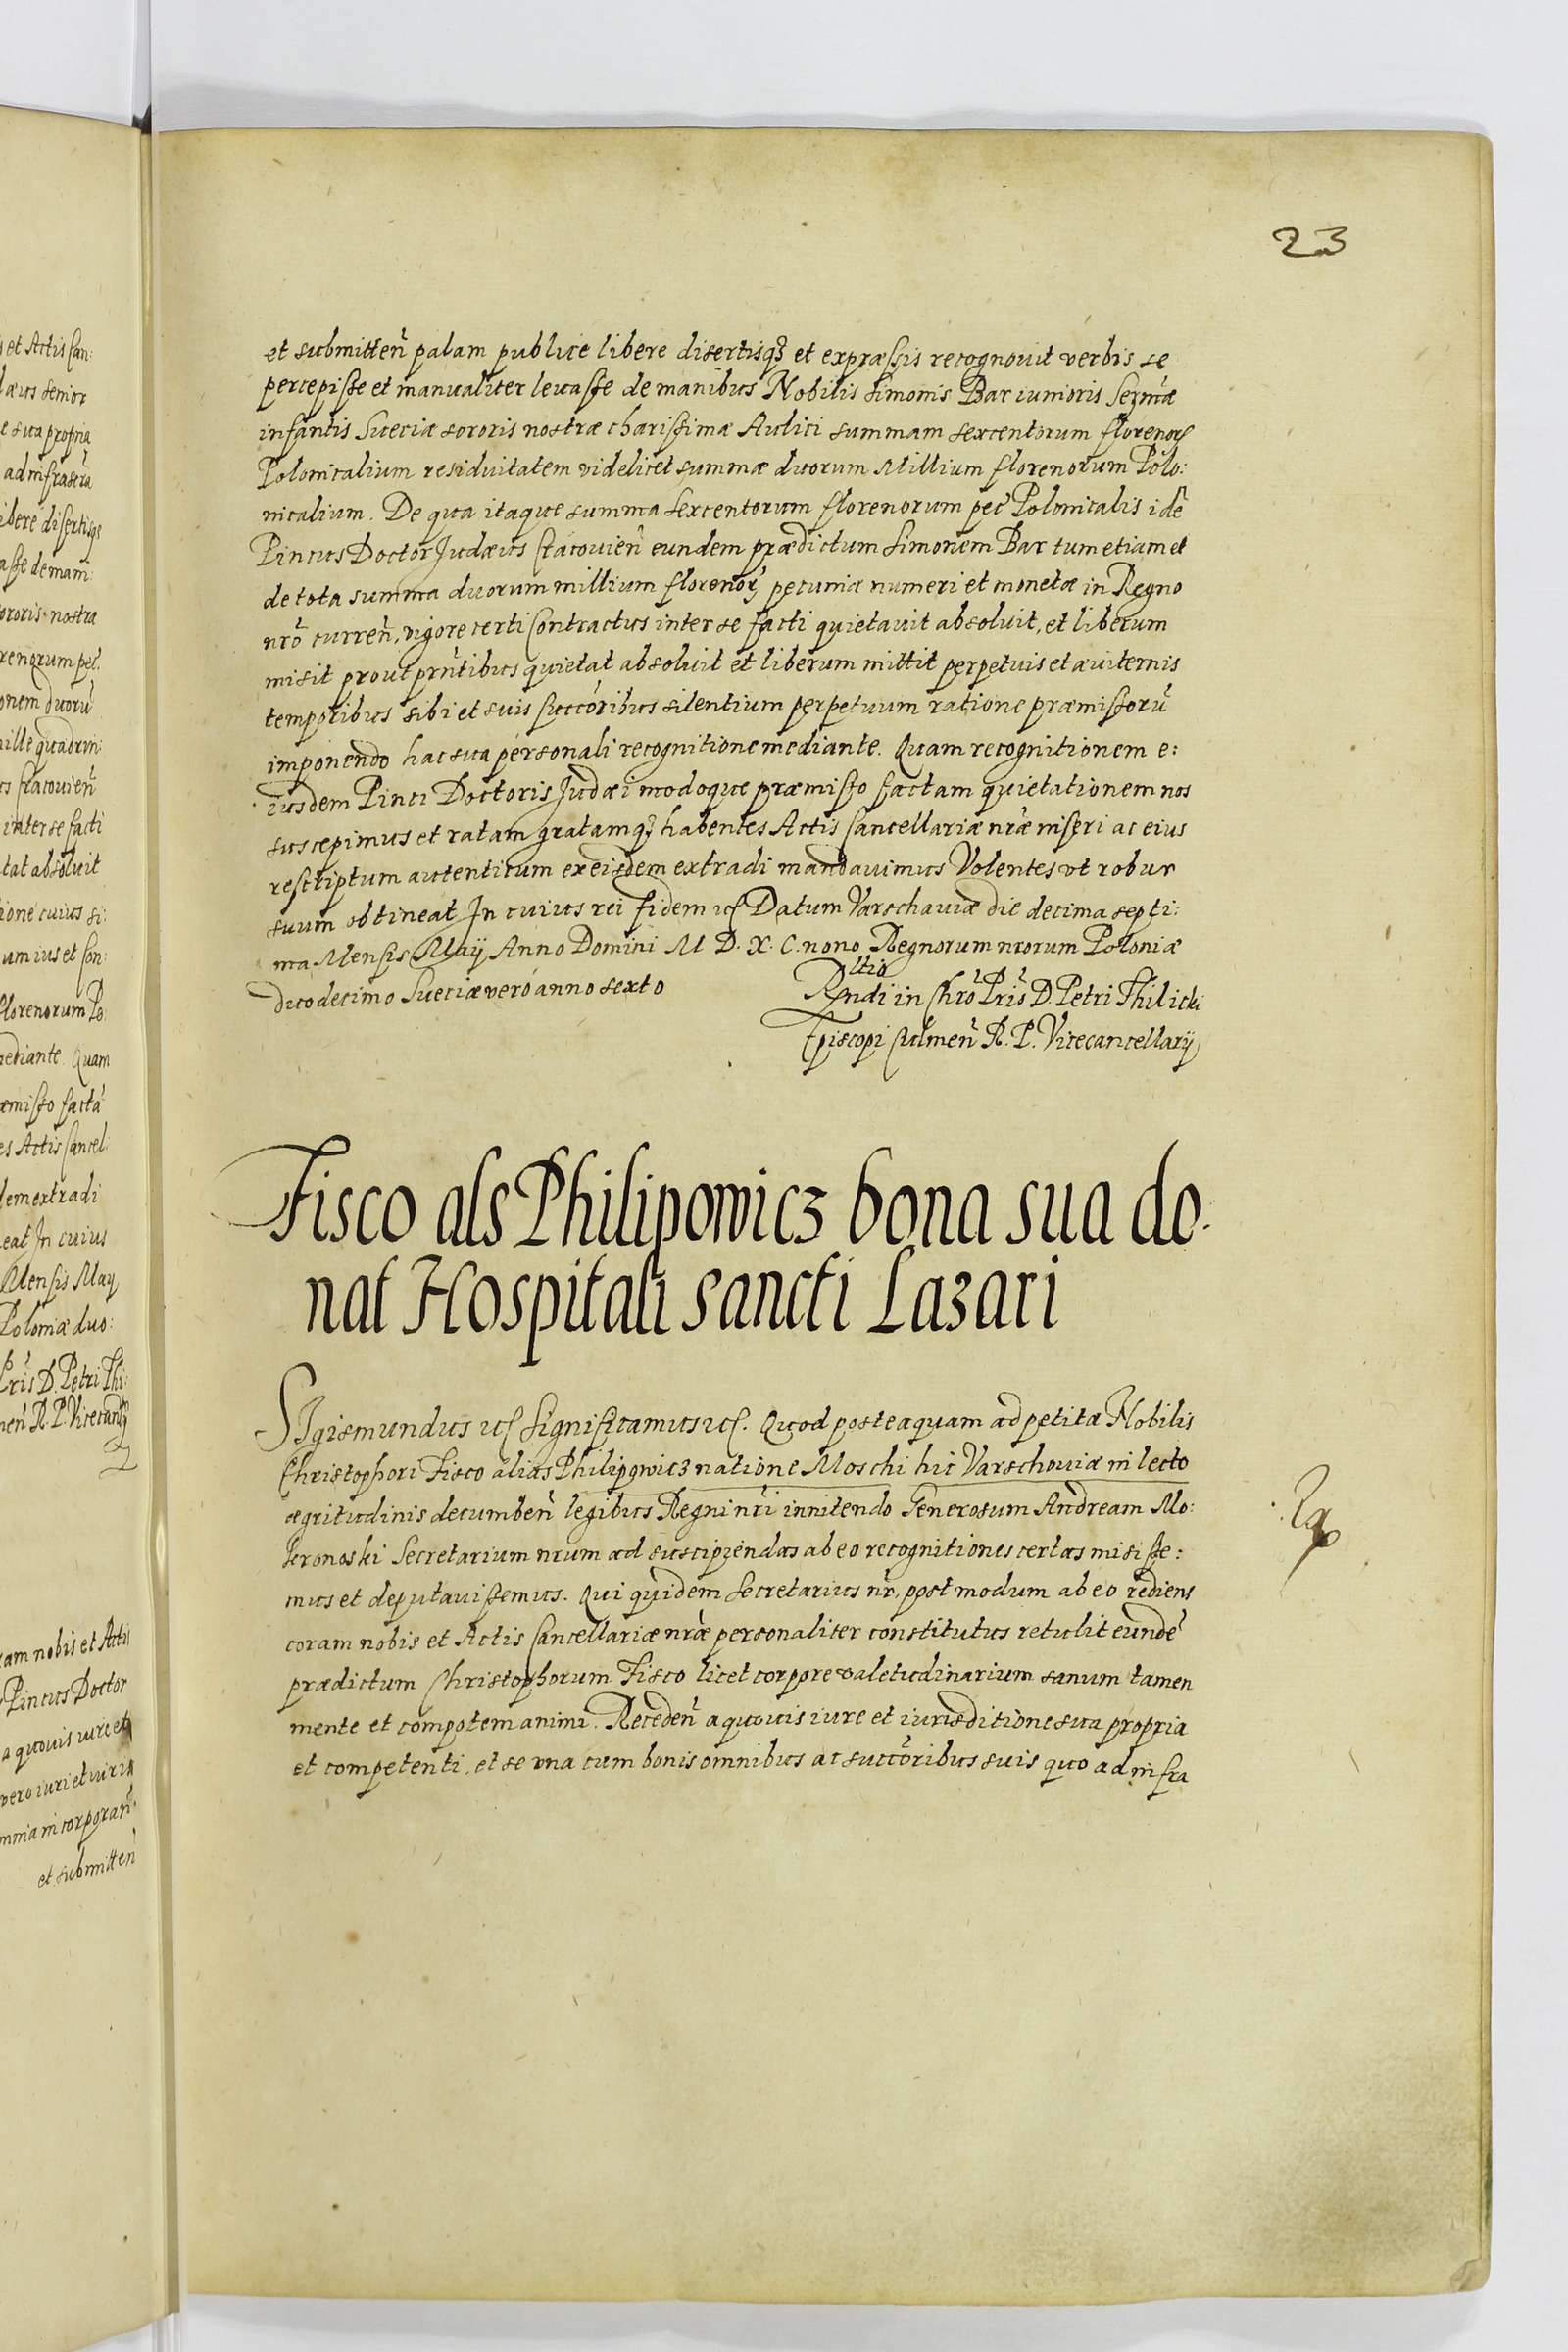 23
et submitteñ palam publice libere disertisq₃ et expræssis recognouit verbis se
percepisse et manualiter leuasse de manibus Nobilis Simonis Bar iunioris Sermæ
infantis Sueciæ sororis nostræ charissimæ Aulici summam sexcentorum florenorꝝ
Polonicalium residuitatem videlicet summæ duorum Millium florenorum Polo:
nicalium. De qua itaque summa sexcentorum florenorum pec̃ Polonicalis idẽ
Pincus Doctor Judæus Cracouieñ eundem prædictum Simonem Bar tum etiam et
de tota summa duorum millium florenorꝝ pecuniæ numeri et monetæ in Regno
nrõ curreñ, vigore certi Contractus inter se facti quietauit absoluit, et liberum
misit prout pntibus quietat absoluit et liberum mittit perpetuis et æuiternis
temporibus sibi et suis succõribus silentium perpetuum ratione præmissorũ
imponendo hac sua personali recognitione mediante. Quam recognitionem e:
iusdem Pinci Doctoris Judæi modoque præmisso factam quietationem nos
suscepimus et ratam gratamq₃ habentes Actis Cancellariæ nræ inseri ac eius
rescriptum autenticum ex eisdem extradi mandauimus Volentes vt robur
suum obtineat In cuius rei fidem ꝛc Datum Varschauiæ die decima septi:
ma Mensis Maij Anno Domini M D. X. C. nono Regnorum nrorum Poloniæ
duodecimo Sueciæ verò anno sexto
Rltio
Rndi in Chrõ Pris̃ D. Petri Thilicki
Episcopi Culmeñ R. P. Vicecancellarij
Fisco als Philipowicz bona sua do:
nat Hospitali sancti Lazari
SIgismundus ꝛc Significamus ꝛc. Quod posteaquam ad petita Nobilis
Christophori Fisco alias Philipowicz natione Moschi hic Varschouiæ in lecto
ægritudinis decumbeñ legibus Regni nri innitendo Generosum Andream Mo:
kronoski Secretarium nrum ad suscipiendas ab eo recognitiones certas misisse:
mus et deputauissemus. Qui quidem Secretarius nr, postmodum ab eo rediens
coram nobis et Actis Cancellariæ nræ personaliter constitutus retulit eundẽ
prædictum Christophorum Fisco licet corpore valetudinarium sanum tamen
mente et compotem animi. Recedeñ a quouis iure et iurisditione sua propria
et competenti, et se vna cum bonis omnibus ac succõribus suis quo ad infra